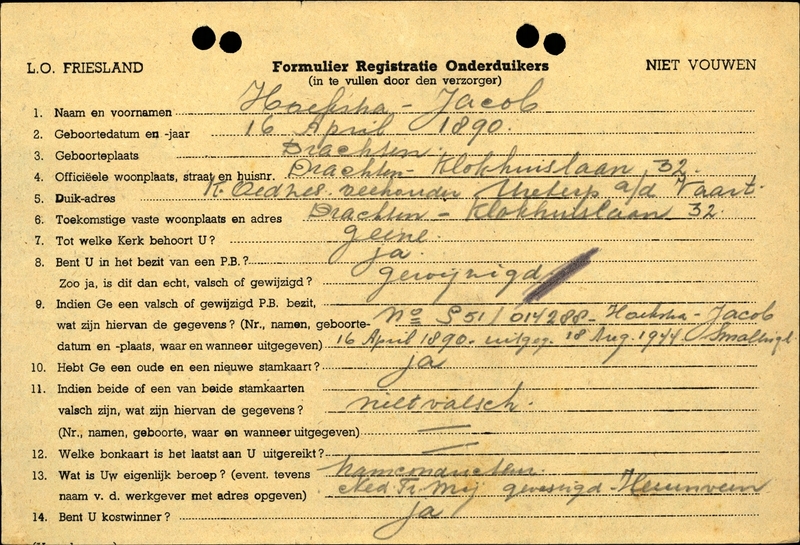 L.O. FRIESLAND Formulier Registratie Onderduikers NIET VOUWEN
(in te vullen door den verzorger)
1. Naam en voornamen Hoeksma - Jacob
2. Geboortedatum en -jaar 16 April 1890.
3. Geboorteplaats Drachten.
4. Officiëele woonplaats, straat en huisnr. Drachten - Klokhuislaan 32.
5. Duik-adres K. veehouder Ureterp a/d Vaart.
6. Toekomstige vaste woonplaats en adres Drachten - Klokhuislaan 32.
7. Tot welke Kerk behoort U? geene.
8. Bent U in het bezit van een P.B.? ja
Zoo ja, is dit dan echt, valsch of gewijzigd? gewijzigd
9. Indien Ge een valsch of gewijzigd P.B. bezit,
wat zijn hiervan de gegevens? (Nr., namen, geboorte- No S51/014288 - Hoeksma - Jacob
datum en -plaats, waar en wanneer uitgegeven) 16 April 1890. uitgeg. 18 Aug. 1944
10. Hebt Ge een oude en een nieuwe stamkaart? ja
11. Indien beide of een van beide stamkaarten
valsch zijn, wat zijn hiervan de gegevens? niet valsch.
(Nr., namen, geboorte, waar en wanneer uitgegeven)
12. Welke bonkaart is het laatst aan U uitgereikt?
13. Wat is Uw eigenlijk beroep? (event. tevens
naam v. d. werkgever met adres opgeven) Ned Tr. Mij gevestigd - Heerenveen
14. Bent U kostwinner? ja